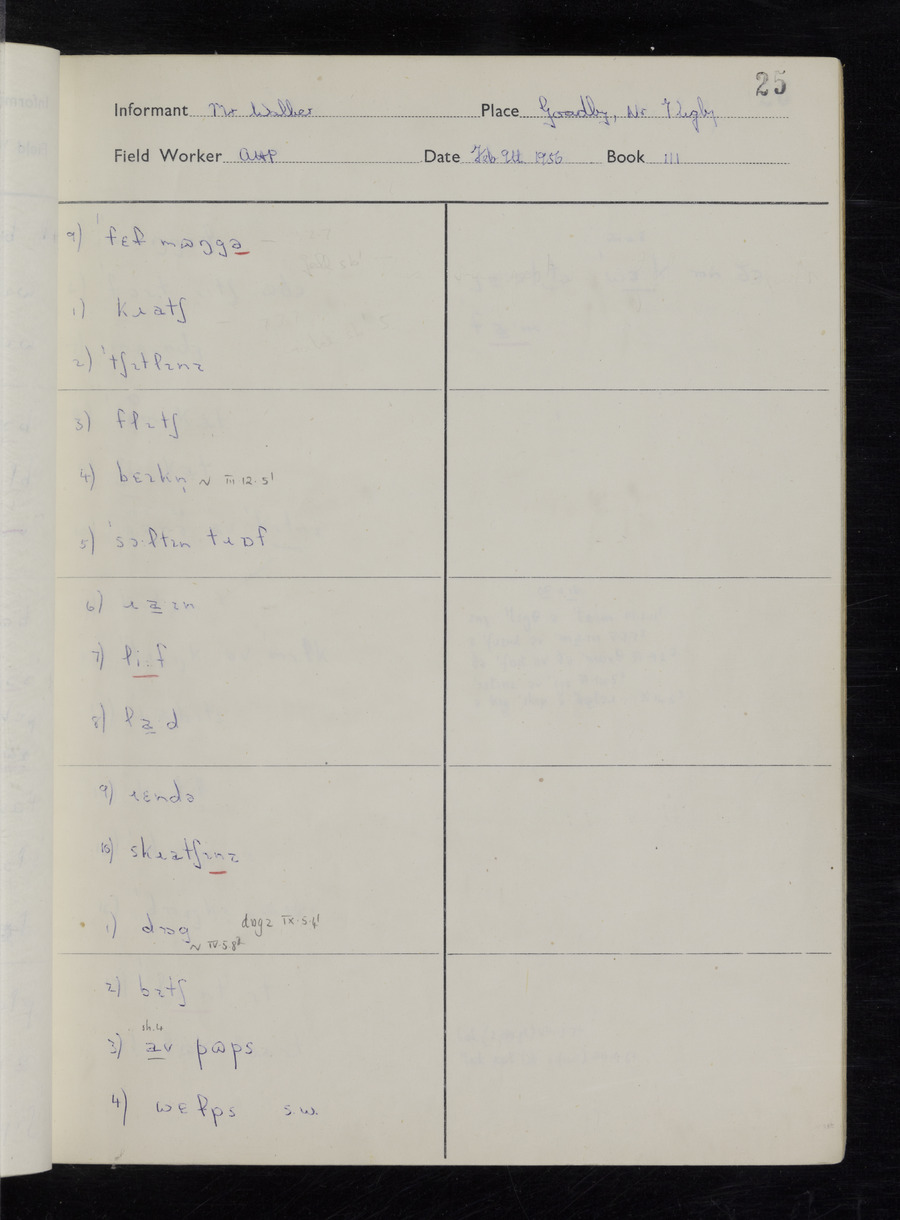 25
Informant Mr Walker Place Goadby, Nr Tugby
Field Worker Date Feb 9th 1956 Book III
9) ˈfɛɫ mɷŋgə
1) kɹatʃ
2) ˈtʃɪtlɪnz
3) flɪtʃ
4) bɛɪkn̩ ~ III 12.5¹
5) ˈsɔːltɪn tɹɒf
6)
7) liːf
8) la̱d
9) ɹɛndə
10) skɹatʃɪnz
1) dɒg dɒgz IX.5.4¹
~ IV.5.8²
2) bɪtʃ
3) a̱v pɷps
4) wɛɫps s.w.